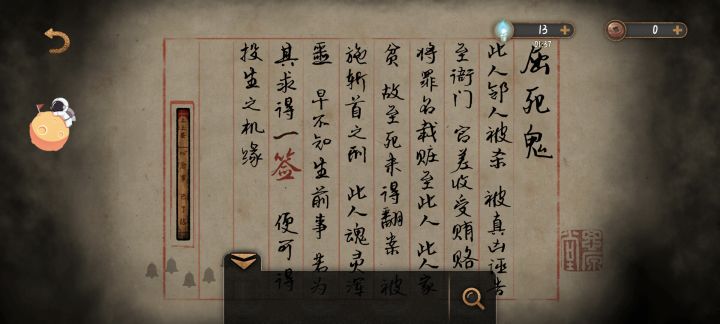 13
01:57
0
屈死鬼
此人邻人被杀 被真凶诬告
至衙门 官差收受贿赂
将罪名栽赃至此人 此人家
贫 故至死未得翻案 被
施斩首之刑 此人魂灵浑
噩 早不知生前事 若为
其求得一签 便可得
投生之机缘